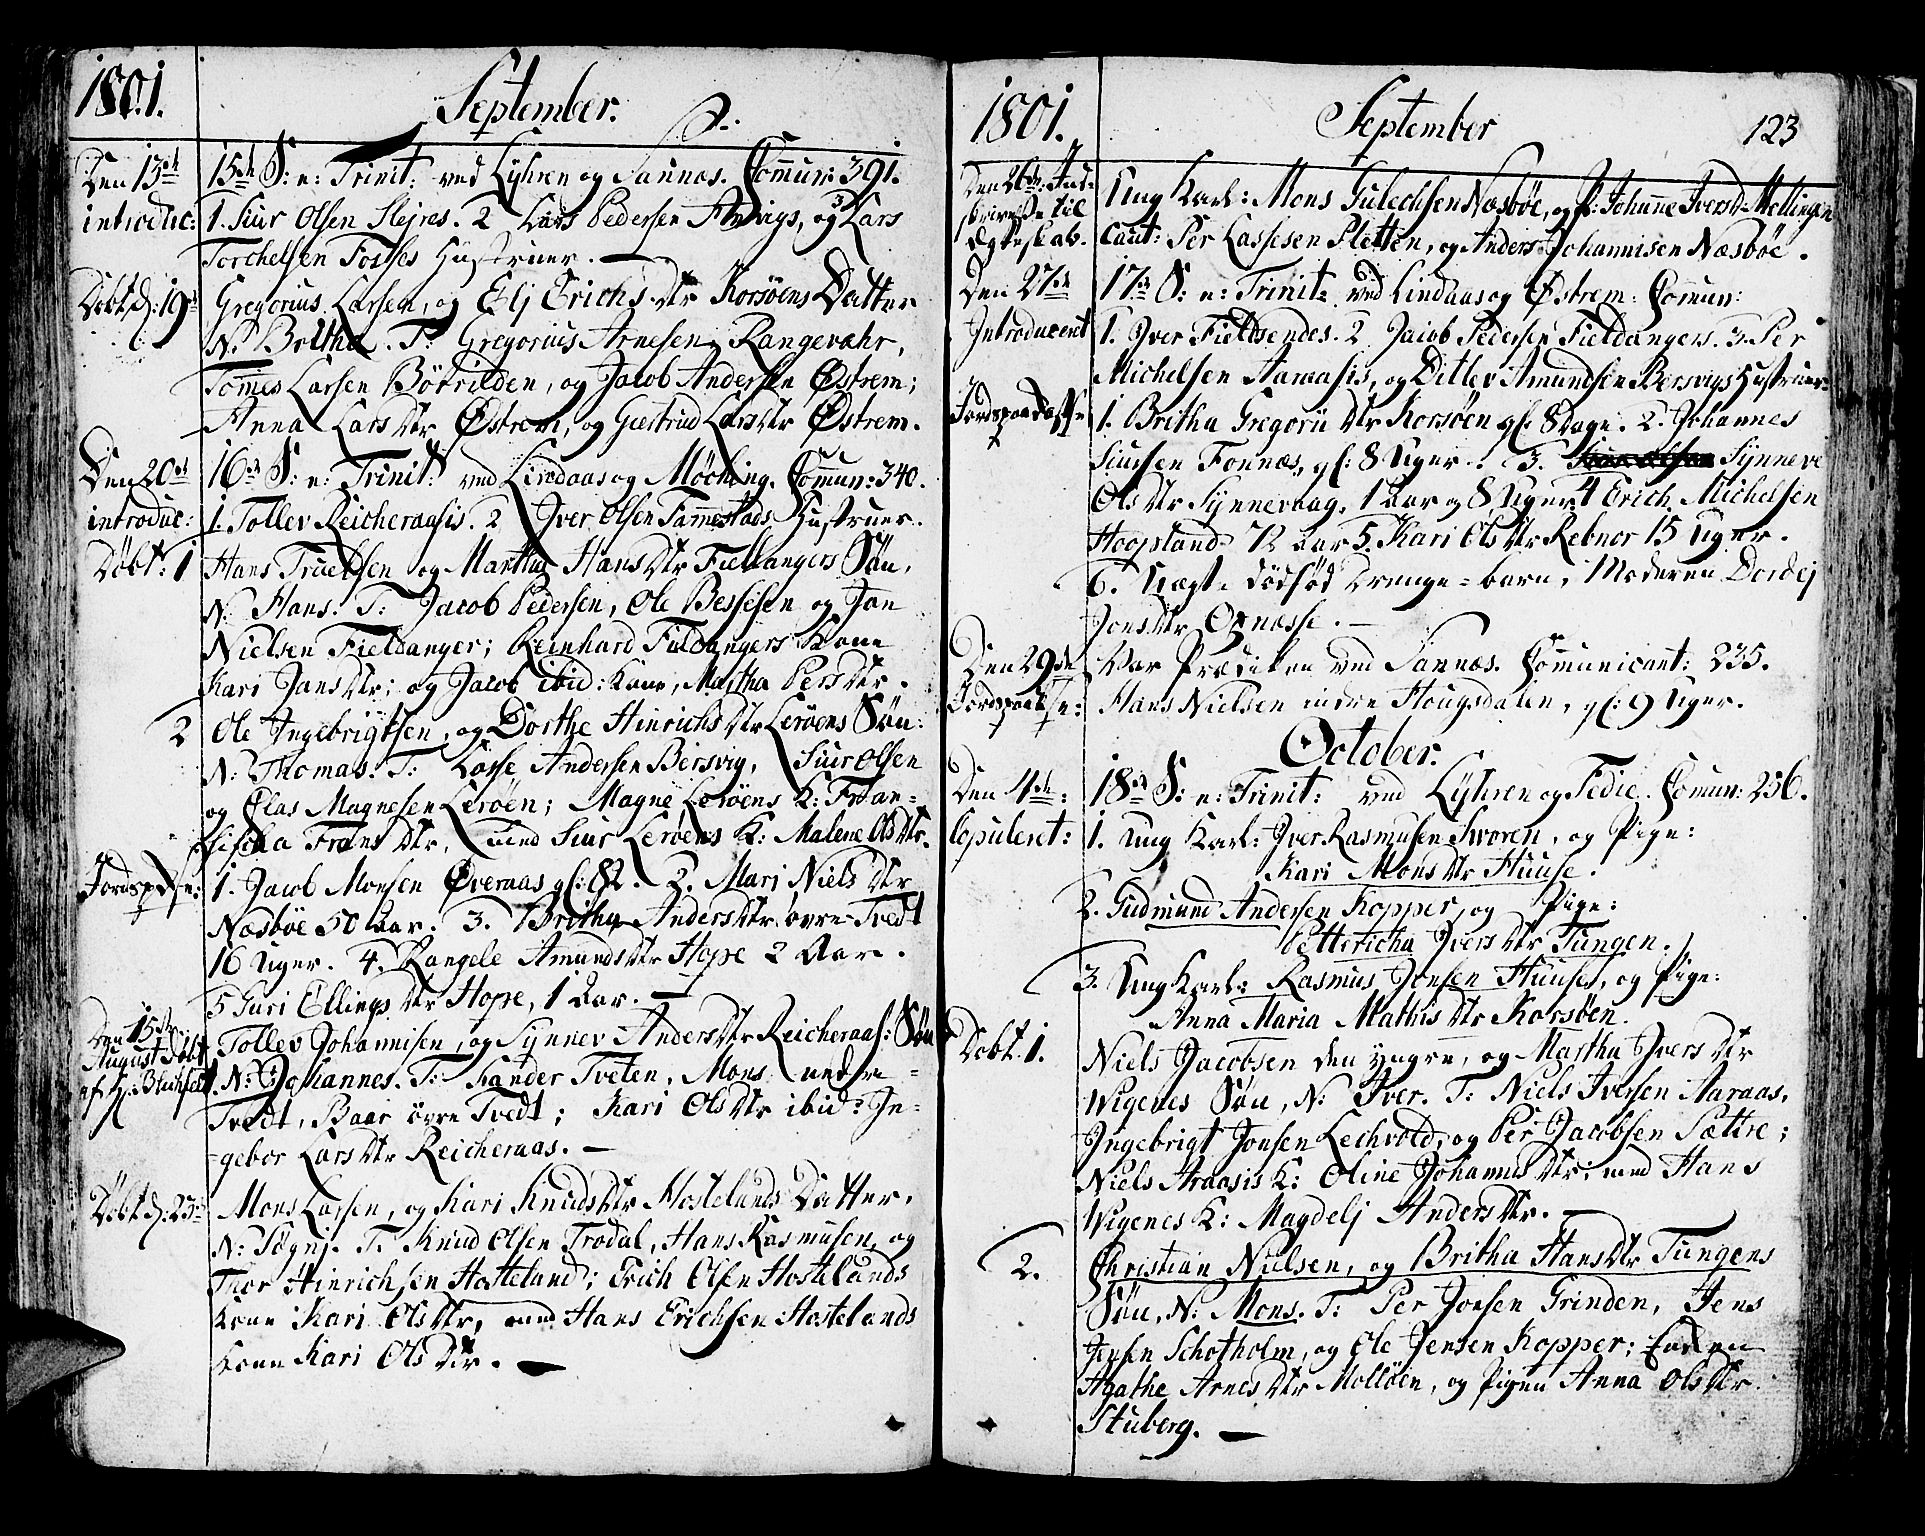 1801.
September.
Den 13de 15de S: e: Trinit: ved Lyhren og Sannæs. Commun: 391.
introduc: 1. Siur Olsen Slejres. 2 Lars Pedersen Andvigs, og 3 Lars
Torchelsen Fosses Hustruer. —
Døbt d: 19de Gregorius Larsen, og Elj Erichs dtr Korsøens Datter
N: Britha. T: Gregorius Arnesen Rangevæhr,
Tomes Larsen Bötvilden, og Jacob Andersen Østrem;
Anna Lars dtr Østrem, og Giertrud Lars dtr Østrem.
Den 20de 16de S: e: Trinit: ved Lindaas og Möching. Commun: 340.
introduc: 1. Tollev Reicheraasis. 2 Iver Olsen Fammestads Hustruer.
Døbt: 1 Hans Truelsen og Martha Hans dtr Fieldangers Søn,
N: Hans. T: Jacob Pedersen, Ole Bessesen og Jan
Nielsen Fieldanger; Reinhard Fieldangers Kone
Kari Jans dtr; og Jacob ibid: Kone, Martha Pers dtr.
2 Ole Ingebrigtsen, og Dorthe Hinrichs dtr Lerøens Søn:
N: Thomas. T: Lasse Andersen Bersvig, Siur Olsen
og Clas Magnesen Lerøen; Magne Lerøens K: Fran-
sischa Frans dtr, med Siur Lerøens K: Malene Ols dtr.
Jordspdse: 1. Jacob Monsen Øveraas gl: 82. 2. Mari Niels dtr
Næsbøe 50 Aar. 3. Britha Anders dtr øvre Tvedt
16 Uger. 4. Rangele Amunds dtr Hope 2 Aar.
5 Guri Ellings dtr Hope, 1 Aar. —
Den 15de August Døbt af Hr: Blichfeldt Tollev Johannisen, og Synnev Anders dtr Reicheraas: Søn
N: Johannes. T: Sander Tveten, Mons nedre-
Tvedt, Baar øvre Tvedt; Kari Ols dtr ibid: In-
gebor Lars dtr Reicheraas. —
Døbt d: 23de Mons Larsen, og Kari Knuds dtr Hostelands Datter,
N: Søgnj. T. Knud Olsen Trodal, Hans Rasmusen, og
Thor Hinrichsen Hotteland; Erich Olsen Hostelands
Kone Kari Ols dtr, med Hans Erichsen Hostelands
Kone Kari Ols dtr. —
1801.
September
123
Den 26de: Ind-
skrivesse til
Egteskab. Ung Karl: Mons Gulechsen Næsbøe, og P: Johanne Ivers dr Mellingen
Caut: Per Lassesen Sletten, og Anders Johannisen Næsbøe.
Den 27de 17de S: e: Trinit: ved Lindaas og Østrem: Comun:
Introduceret 1. Iver Fieldsendes. 2 Jacob Pedersen Fieldangers. 3. Per
Michelsen Aaraasis, og Ditlev Amundsen Bersvigs Hustruer
Jordspaadse 1. Britha Gregorii dtr Korsøen gl: 8 Dage. 2. Johannes
Siursen Fonnæs, gl: 8 Uger. 3. Synneve
Ols dtr Synnevaag, 1 Aar og 8 Uger 4 Erich Michelsen
Hoopland 72 Aar 5. Kari Ols dtr Rebnor 15 Uger.
6. Uægt. dødfød Drenge-barn, Moderen Dordej
Jons dtr Ognæsse. —
Den 29de Var Prædiken ved Sannæs. Comunicant: 235.
Jordspaadse: Hans Nielsen indre Hougsdalen, gl: 9 Uger.
October.
Den 4de: 18de S: e: Trinit: ved Lyhren og Fedie. Comun: 256.
Copuleret: 1. Ung Karl: Iver Rasmusen Sworen, og Pige:
Kari Mons dtr Huuse.
2. Gudmund Andersen Kopper, og Pige:
Pettericha Ivers dtr Tungen.
3. Ung Karl: Rasmus Jonsen Huuses, og Pige:
Anna Maria Mathis dtr Korsøen.
Døbt. 1. Niels Jacobsen den yngre, og Martha Ivers dtr
Wigenes Søn, N: Iver. T: Niels Iversen Aaraas,
Ingebrigt Jonsen Lechvold, og Per Jacobsen Sættre;
Niels Araasis K: Oline Johannis dtr, med Hans
Wigenes K: Magdelj Anders dtr. —
2. Christian Nielsen, og Britha Hans dtr Tungens
Søn, N: Mons. T: Per Jonsen Grinden, Jens
Jensen Schotholm, og Ole Jensen Kopper; Enken
Agathe Arnes dtr Molløen, og Pigen Anna Ols dtr
Stuberg. —